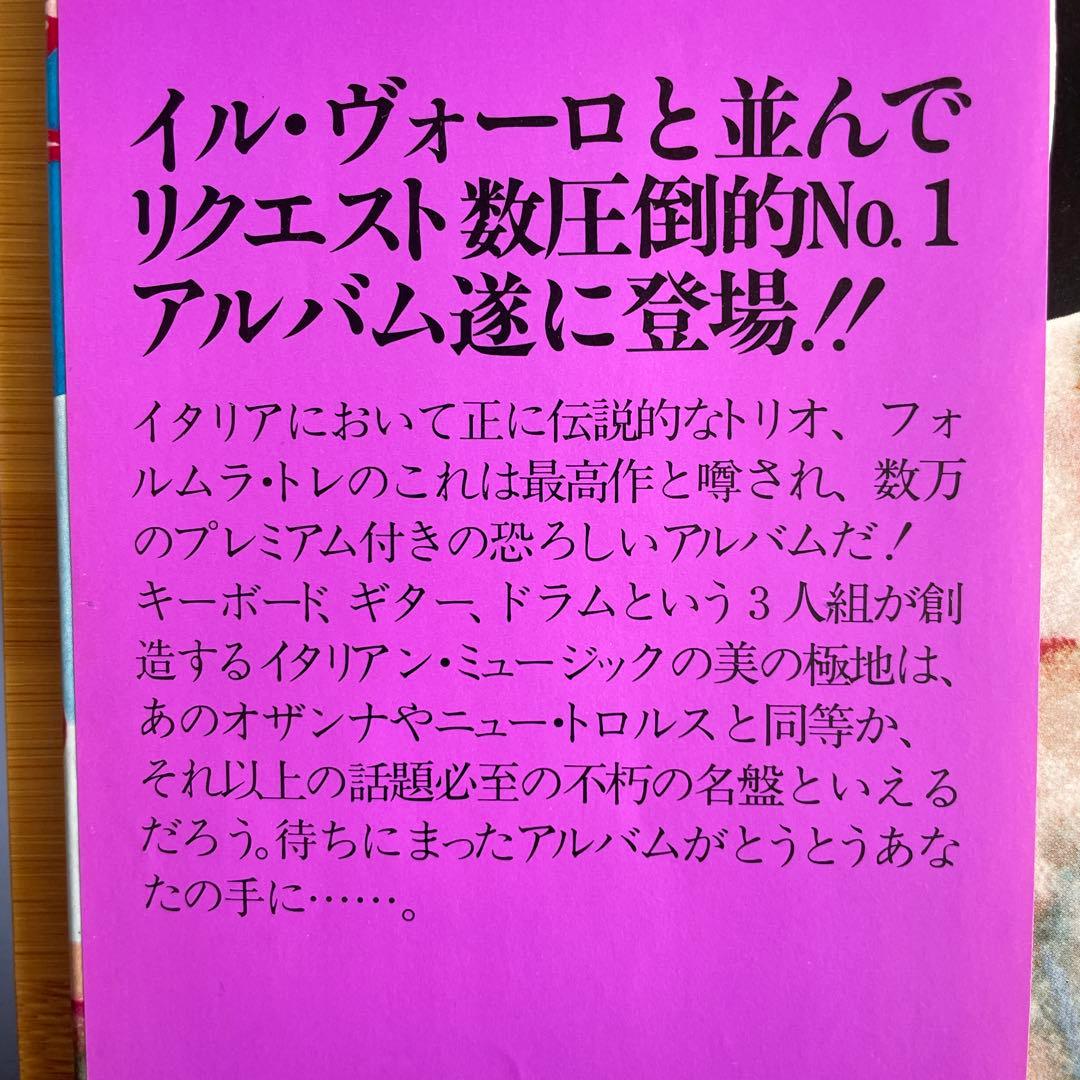 イル・ヴォーロと並んで
リクエスト数圧倒的No.1
アルバム遂に登場!!
イタリアにおいて正に伝説的なトリオ、フォ
ルムラ・トレのこれは最高作と噂され、数万
のプレミアム付きの恐ろしいアルバムだ!
キーボード、ギター、ドラムという3人組が創
造するイタリアン・ミュージックの美の極地は、
あのオザンナやニュー・トロルスと同等か、
それ以上の話題必至の不朽の名盤といえる
だろう。待ちにまったアルバムがとうとうあな
たの手に……。